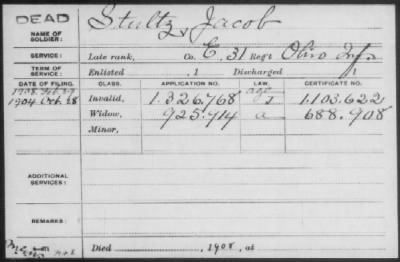 DEAD
NAME OF SOLDIER: Stultz, Jacob
SERVICE: Late rank, Co. E, 31 Reg't Ohio Inf
TERM OF SERVICE: Enlisted , 1 Discharged , 1
DATE OF FILING. CLASS. APPLICATION NO. LAW. CERTIFICATE NO.
1904 Oct. 28 Invalid, 1.326.768 age 1.103.622
Widow, 925.914 688.908
Minor,
ADDITIONAL SERVICES:
REMARKS:
Died , 1908, at